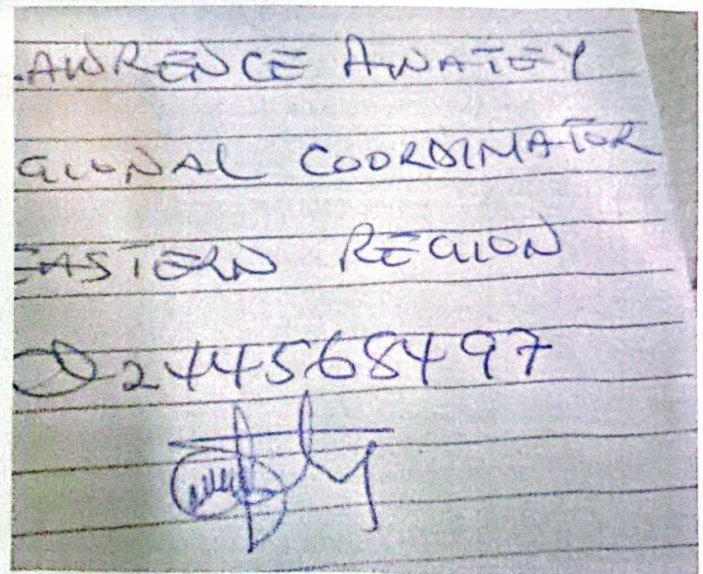 LAWRENCE AWATEY
GIONAL COORDINATOR
EASTERN REGION
0244568497